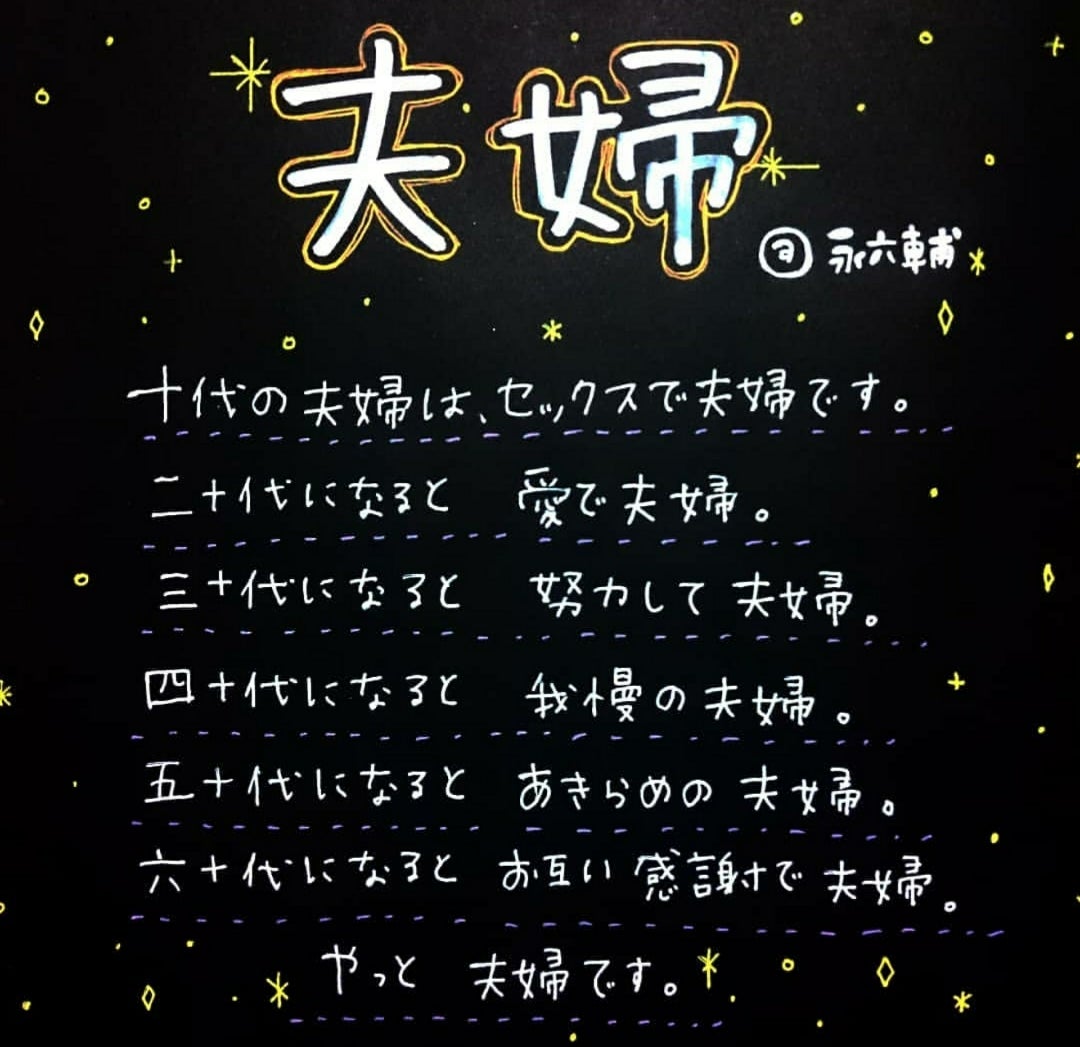 夫婦
ヨ 永六輔
十代の夫婦は、セックスで夫婦です。
二十代になると 愛で夫婦。
三十代になると 努力して夫婦。
四十代になると 我慢の夫婦。
五十代になると あきらめの夫婦。
六十代になると お互い感謝で夫婦。
やっと 夫婦です。